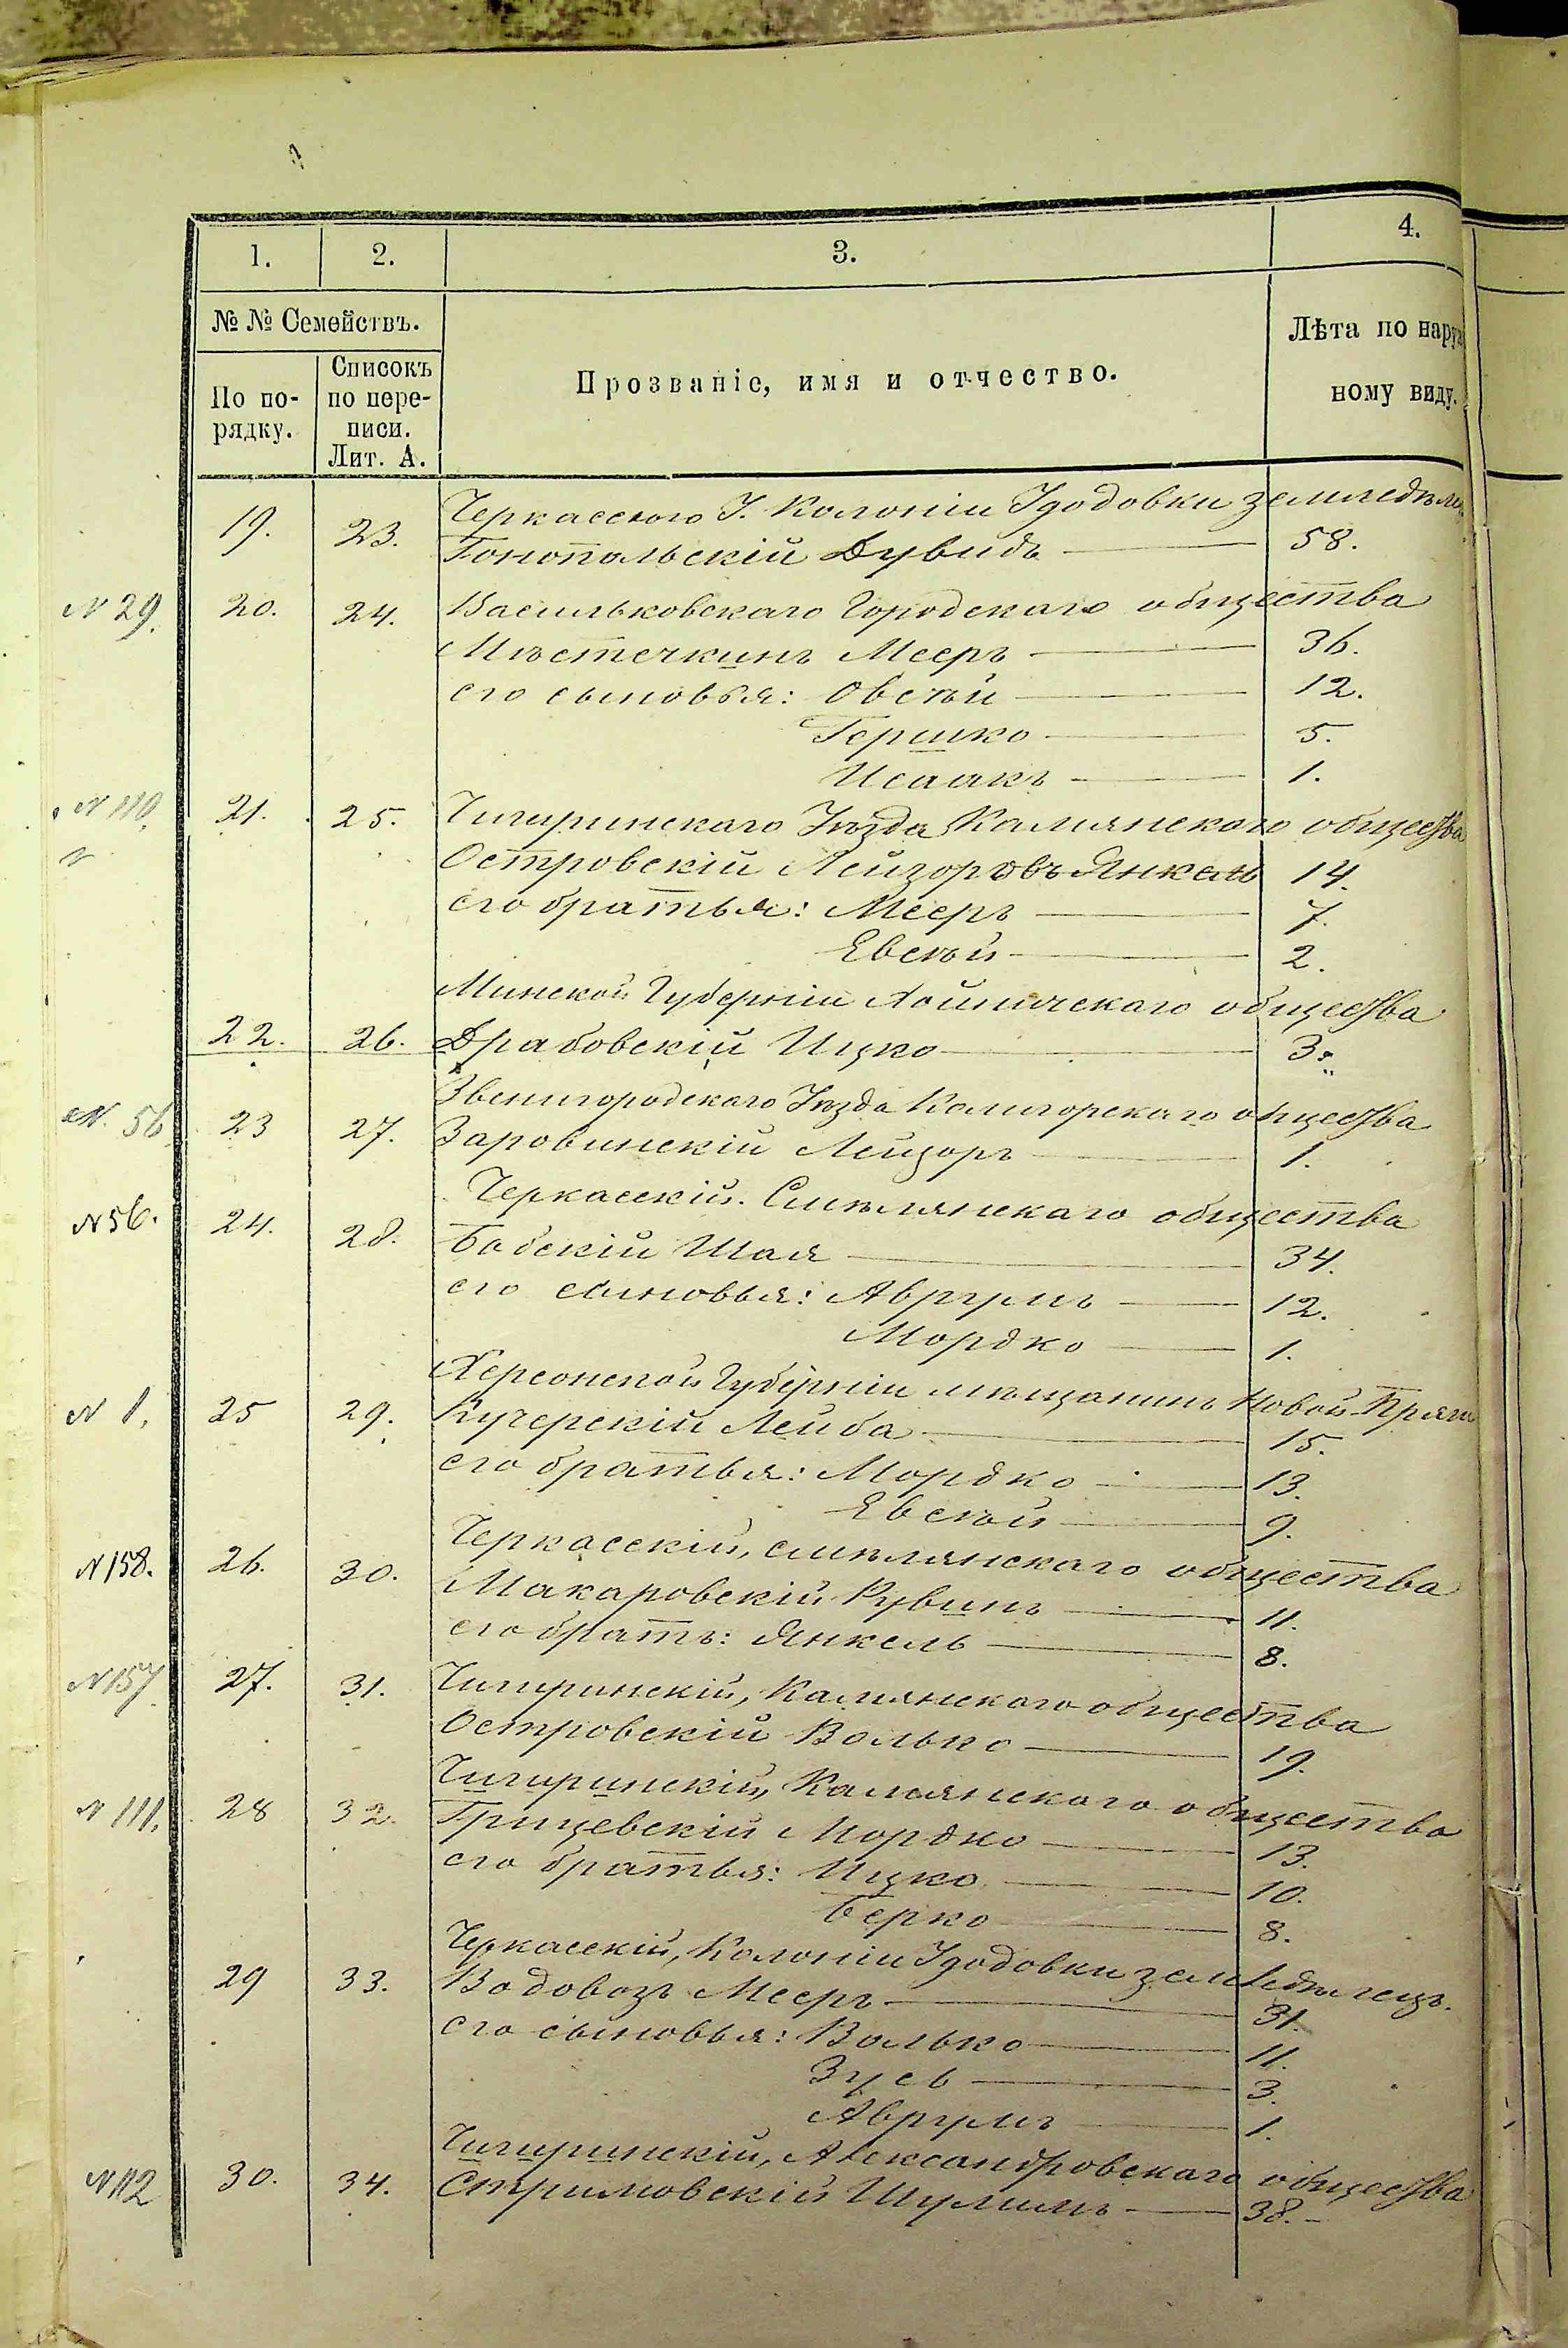 1. 2. 3. 4.
№ № Семействъ.
По по-
рядку.
Списокъ
по пере-
писи.
Лит. А.
Прозваніе, имя и отчество.
Лѣта по наруж
ному виду.
Черкасскаго У. Колоніи Іудовки
19. 23. Гонопольскій Дувидъ 58.
N 29. 20. 24. Васильковскаго Городскаго общества
Мѣстечкинъ Мееръ 36.
его сыновья: Овсѣй 12.
Гершко 5.
Исаакъ 1.
N 110. 21. 25. Чигиринскаго Уѣзда Камянскаго общества
Островскій Лейзоровъ Янкель 14.
его братья: Мееръ 7.
Евсѣй 2.
Минской Губерніи общества
22. 26. Драбовскій Ицко 3.
Звенигородскаго Уѣзда Калигорскаго общества
N. 56 23 27. Заровинскій Лейзоръ 1.
Черкасскій. Смѣлянскаго общества
N 56. 24. 28. Бабскій Шая 34.
его сыновья: Аврумъ 12.
Мордко 1.
Херсонской Губерніи мѣщанинъ Новой-Праги
N 1. 25 29. Кучерскій Лейба 15.
его братья: Мордко 13.
Евсѣй 9.
Черкасскій, смѣлянскаго общества
N 158. 26. 30. Макаровскій Рувинъ 11.
его братъ: Янкель 8.
N 157 27. 31. Чигиринскій, Камянскаго общества
Островскій Волько 19.
Чигиринскій, Камянскаго общества
N 111. 28 32. Грищевскій Мордко 13.
его братья: Ицко 10.
Берко 8.
Черкасскій, Колоніи Іудовки земледѣлецъ.
29 33. Водовозъ Мееръ 31.
его сыновья: Волько 11.
Зусь 3.
Аврумъ 1.
Чигиринскій, Александровскаго общества
N 112 30. 34. Стримовскій Шулимъ 38.